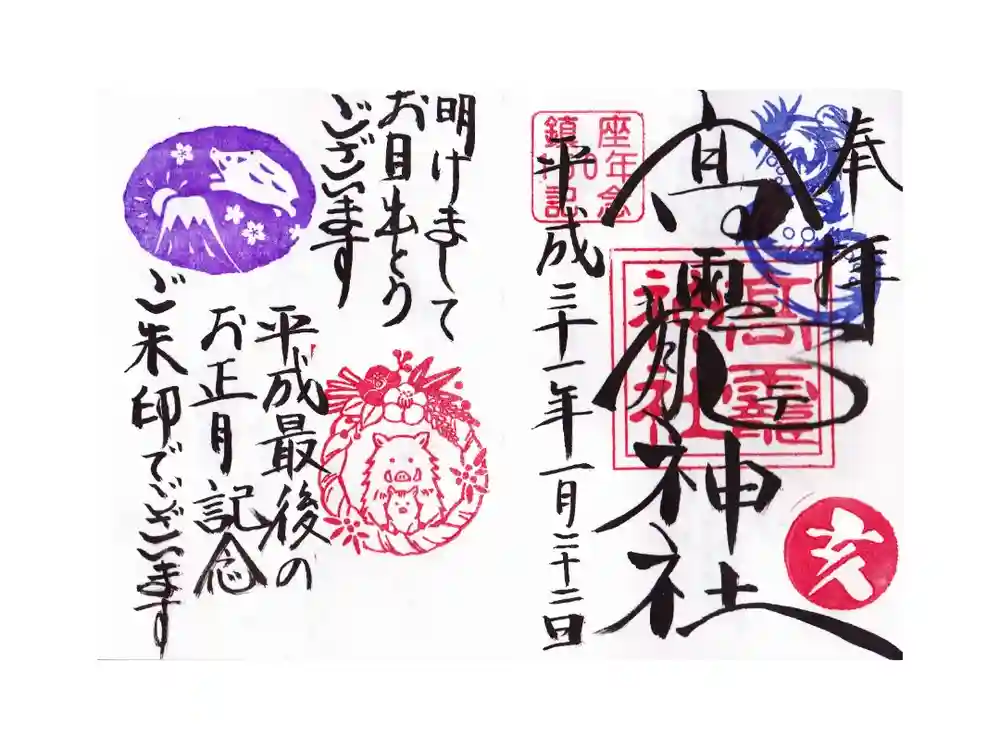 奉拝
高龗神社
平成三十一年一月二十二日
高龗
神社
座年念
鎮 記
亥
明けまして
お目出とう
ございます
平成最後の
お正月記念
ご朱印でございます